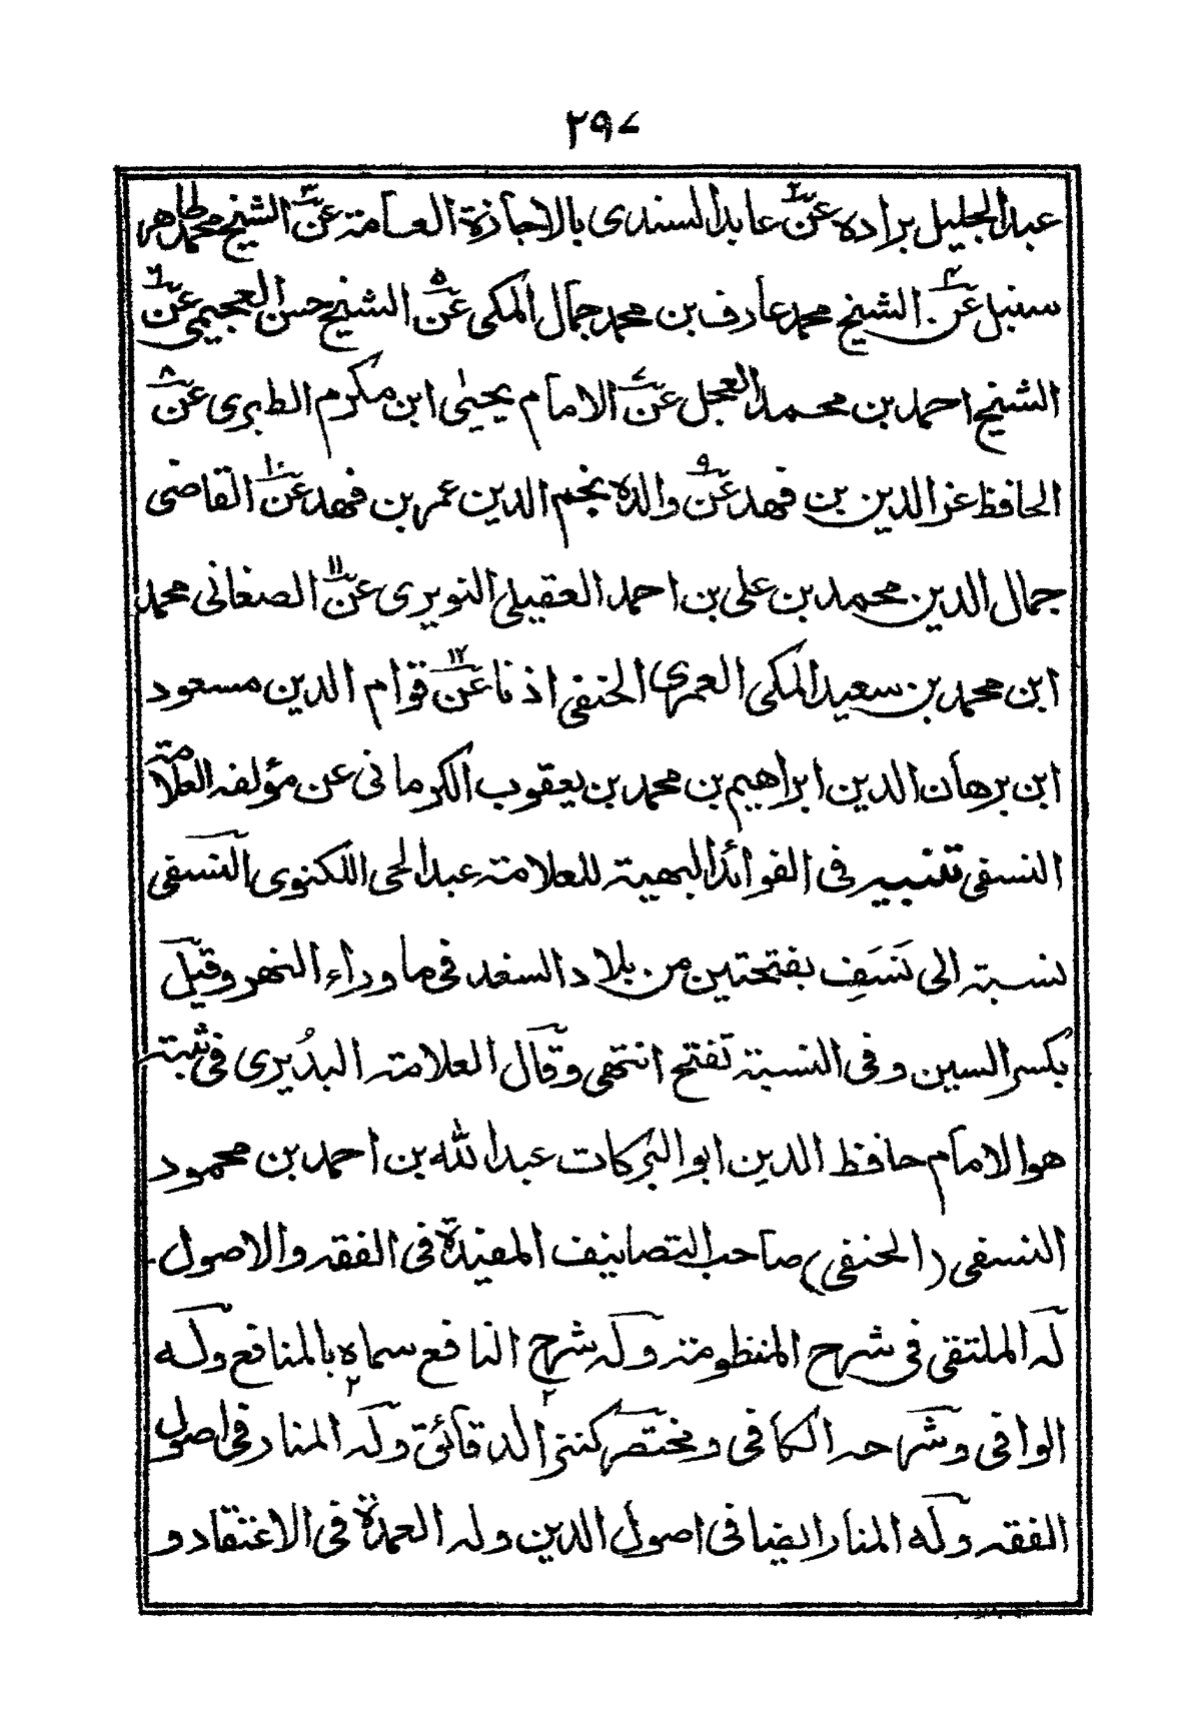 ۲۹۷
عبد الجليل براده عن۲ عابد السندی بالاجازة العامة عن۳ الشيخ محمد طاهر
سنبل عن۴ الشيخ محمد عارف بن محمد جمال المکی عن۵ الشيخ حسن العجيمی عن۶
الشيخ احمد بن محمد العجل عن۷ الامام يحيیٰ ابن مکرم الطبری عن۸
الحافظ عز الدين بن فهد عن۹ والده نجم الدين عمر بن فهد عن۱۰ القاضی
جمال الدين محمد بن علی بن احمد العقيلی النويری عن۱۱ الصغانی محمد
ابن محمد بن سعيد المکی العمری الحنفی اذنا عن۱۲ قوام الدين مسعود
ابن برهان الدين ابراهيم بن محمد بن يعقوب الکرمانی عن مؤلفه العلامة
النسفی تنبيه فی الفوائد البهية للعلامة عبد الحی اللکنوی النسفی
نسبة الی نَسَفِ بفتحتين من بلاد السغد فی ما وراء النهر وقيل
بکسر السين وفی النسبة تفتح انتهی وقال العلامة البدُيری فی ثبته
هو الامام حافظ الدين ابو البرکات عبد الله بن احمد بن محمود
النسفی (الحنفی) صاحب التصانيف المفيدة فی الفقه والاصول ـ
له الملتقی فی شرح المنظومة وله شرح النافع سماه بالمنافع وله
الوافی وشرحه الکافی ومختصره کنز۲ الدقائق وله۲ المنار فی اصول
الفقه وله المنار ايضا فی اصول الدين وله العمدة فی الاعتقاد و